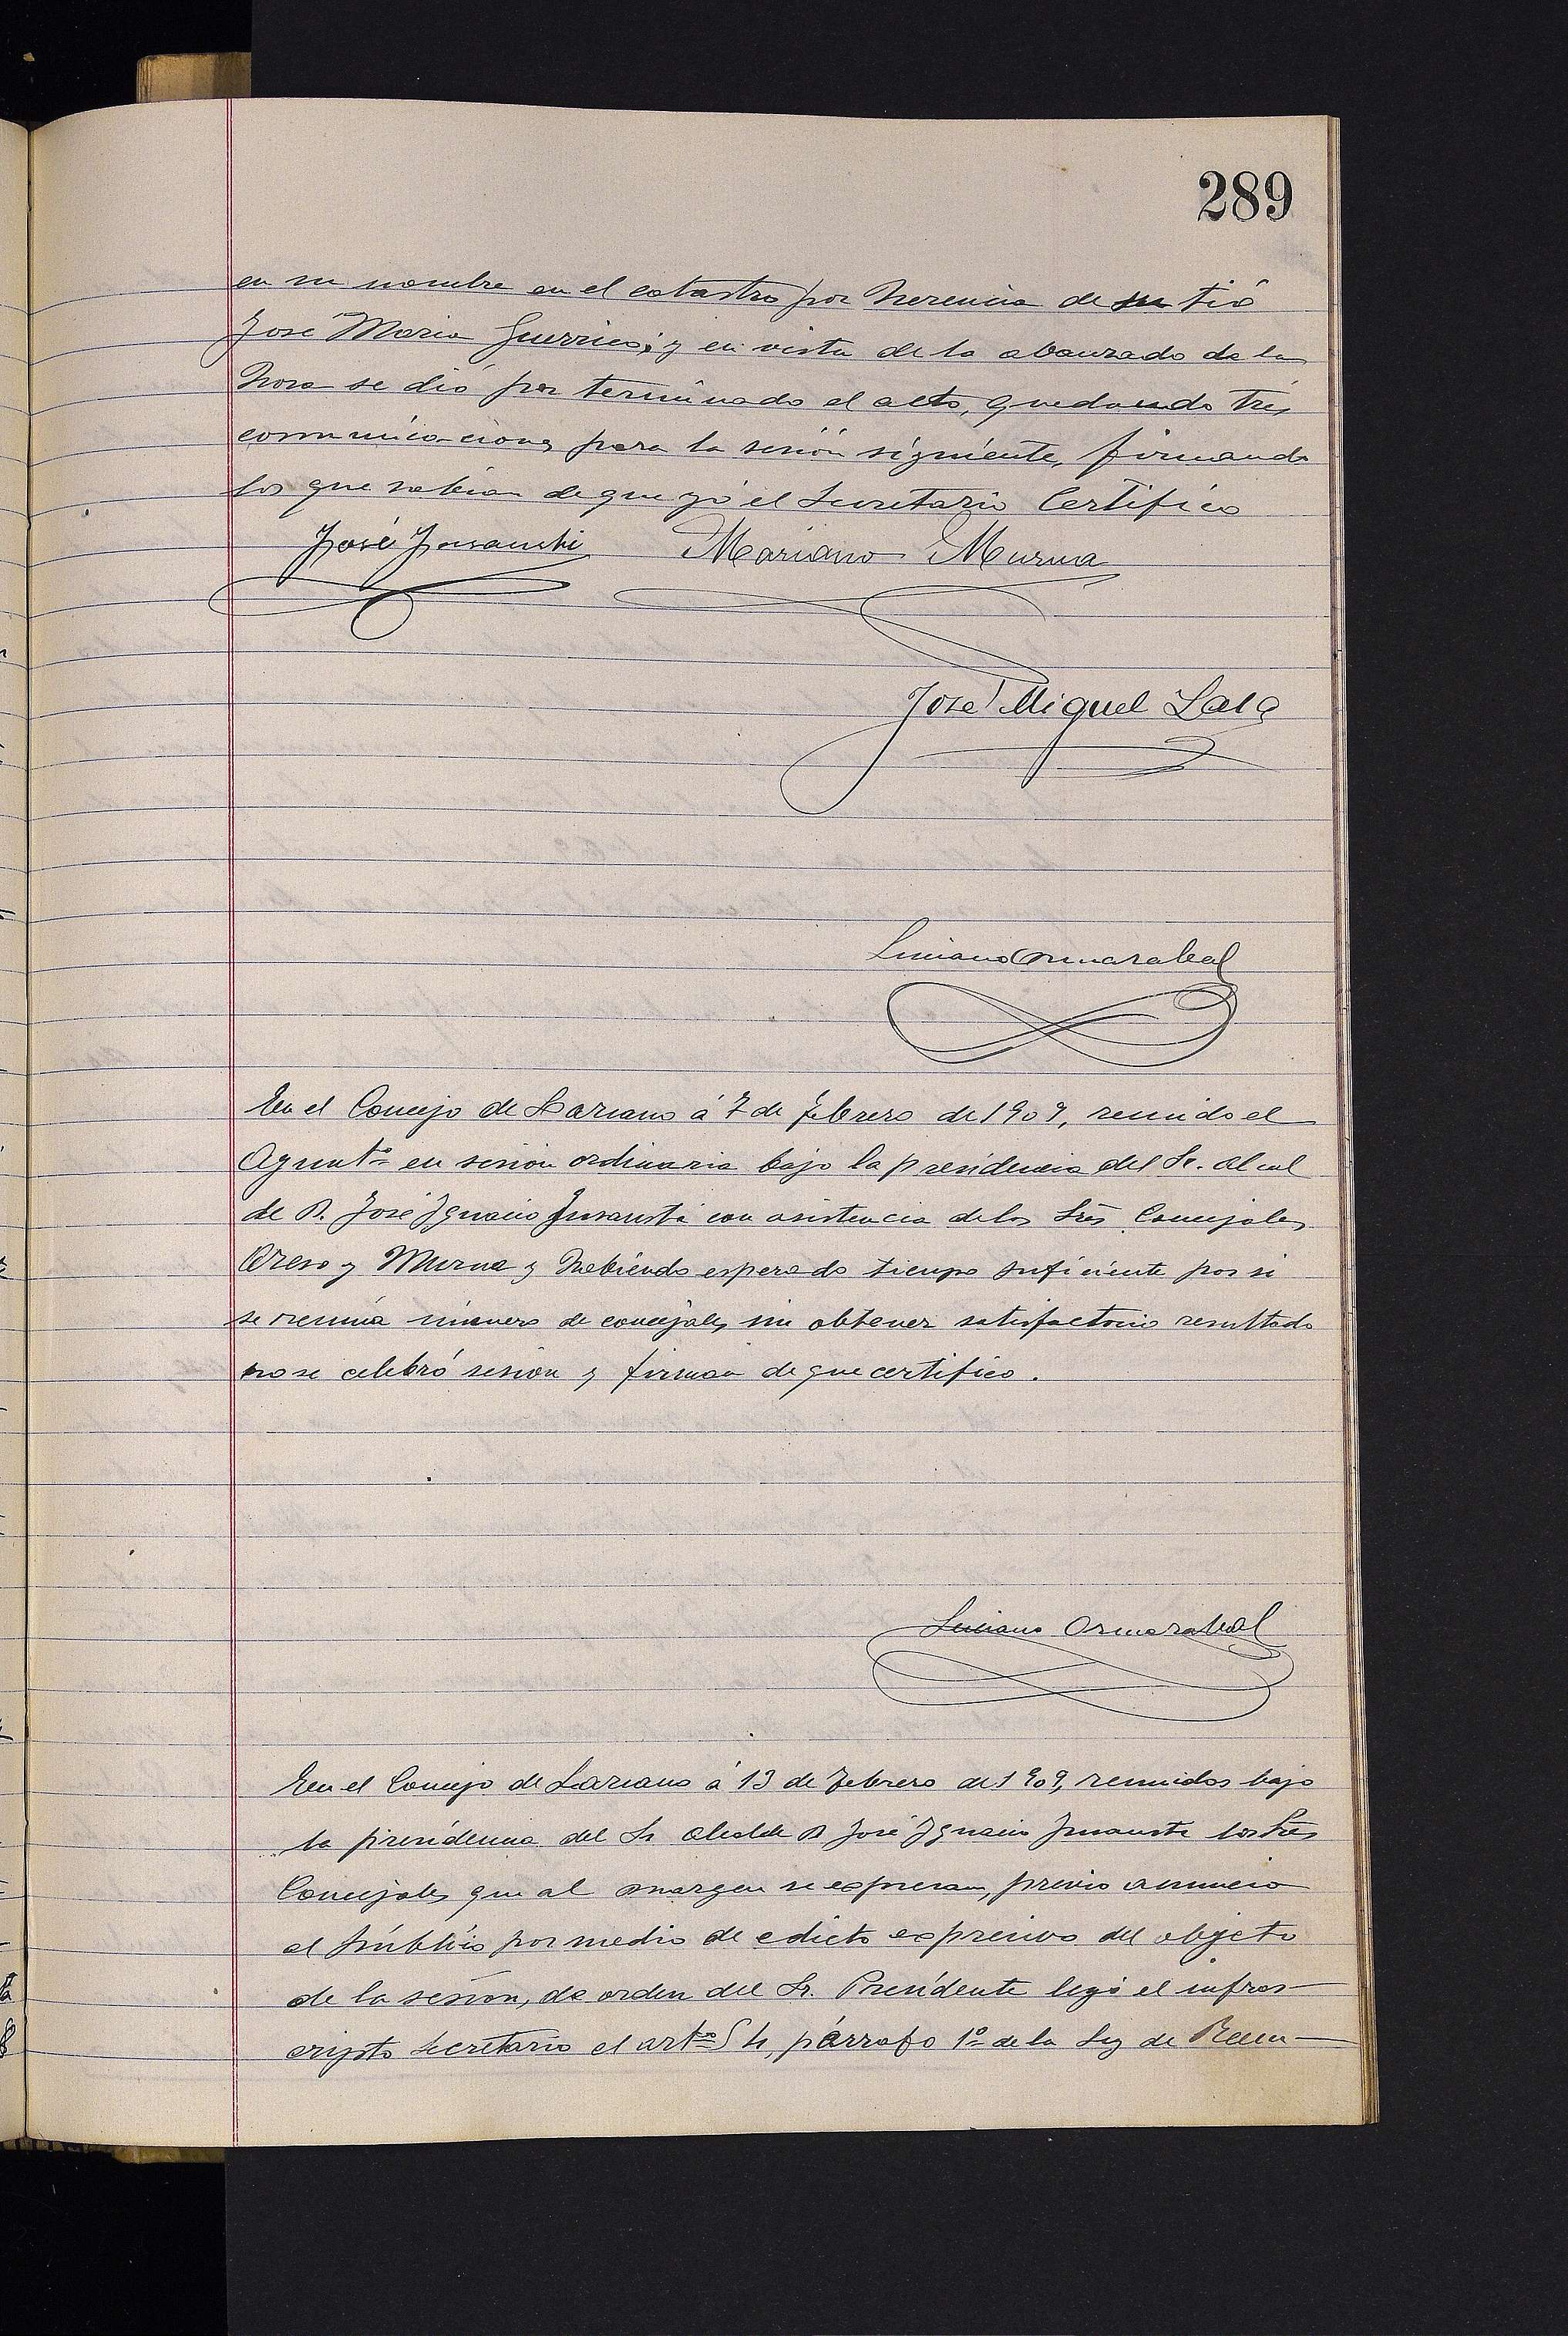 289
en su nombre en el catastro por herencia de su tio
José Maria Guerrico; y en vista de lo abanzado de la
hora se dió por terminado el acto, quedando tres
comunicaciones para la sesión siguiente, firmando
los que sabian de que yó el Secretario Certifico
José Insausti Mariano Murua
José Miguel Lasa
Luciano Ormazabal
En el Concejo de Lazcano á 7 de Febrero de 1909, reunido el
Ayuntº en sesion ordinaria bajo la presidencia del Sr. Alcal
de D. José Ignacio Insausti con asistencia de los Srēs Concejales
y Murua y habiendo esperado tiempo suficiente por si
se reunia número de concejales, sin obtener satisfactorio resultado
no se celebró sesion y firman de que certifico.
Luciano Ormazabal
En el Concejo de Lazcano á 13 de Febrero de 1909, reunidos bajo
la presidencia del Sr Alcalde D José Ignacio Insausti los Srēs
Concejales que al margen se expresan, previo anuncio
al público por medio de edicto expresivo del objeto
de la sesion, de orden del Sr. Presidente leyó el infras-
cripto Secretario el artº 54, párrafo 1º de la Ley de Reem-